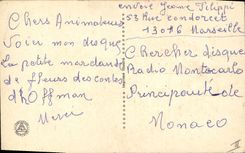 envoie Jeanne Filippi
53 Rue Condorcet
13016 Marseille
Chers Animateurs
Voici mon disque
La petite marchande
de fleurs des contes
d'Hoffman
Merci
Chercher disque
Radio Montecarlo
Principauté de
Monaco